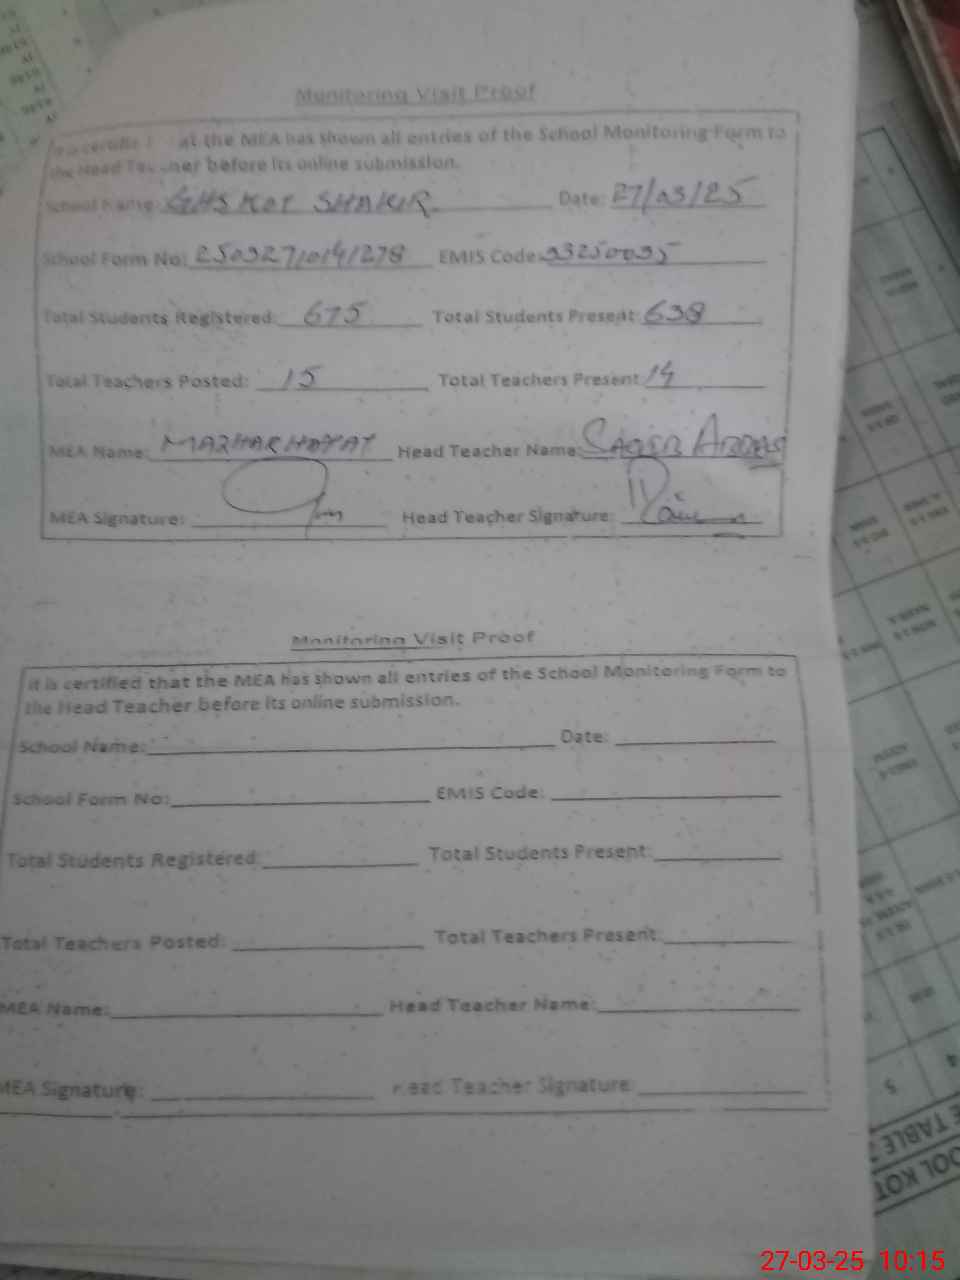 Monitoring Visit Proof
at the MEA has shown all entries of the School Monitoring Form to
the Head Teacher before its online submission.
School Name: GHS KOT SHAKIR Date: 27/03/25
School Form No: EMIS Code: 33250035
Total Students Registered: 675 Total Students Present: 638
Total Teachers Posted: 15 Total Teachers Present: 14
MEA Name: MAZHAR HAYAT Head Teacher Name:
MEA Signature: Head Teacher Signature:
Monitoring Visit Proof
It is certified that the MEA has shown all entries of the School Monitoring Form to
the Head Teacher before its online submission.
School Name: Date:
School Form No: EMIS Code:
Total Students Registered: Total Students Present:
Total Teachers Posted: Total Teachers Present:
MEA Name: Head Teacher Name:
MEA Signature: Head Teacher Signature:
27-03-25 10:15